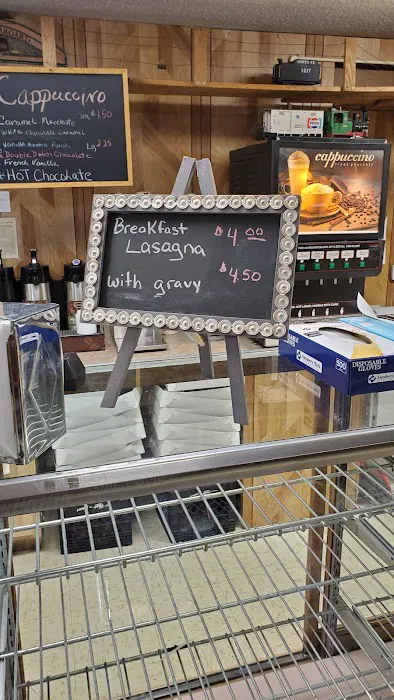 Cappuccino
Caramel Macchiato Sm $1.50
White Chocolate Caramel
Vanilla Mocha Rush Lg 2.25
Double Dutch Chocolate
French Vanilla
Hot Chocolate
SANTA FE
1227
cappuccino
Breakfast $4.00
Lasagna
with gravy $4.50
DISPOSABLE
GLOVES
500